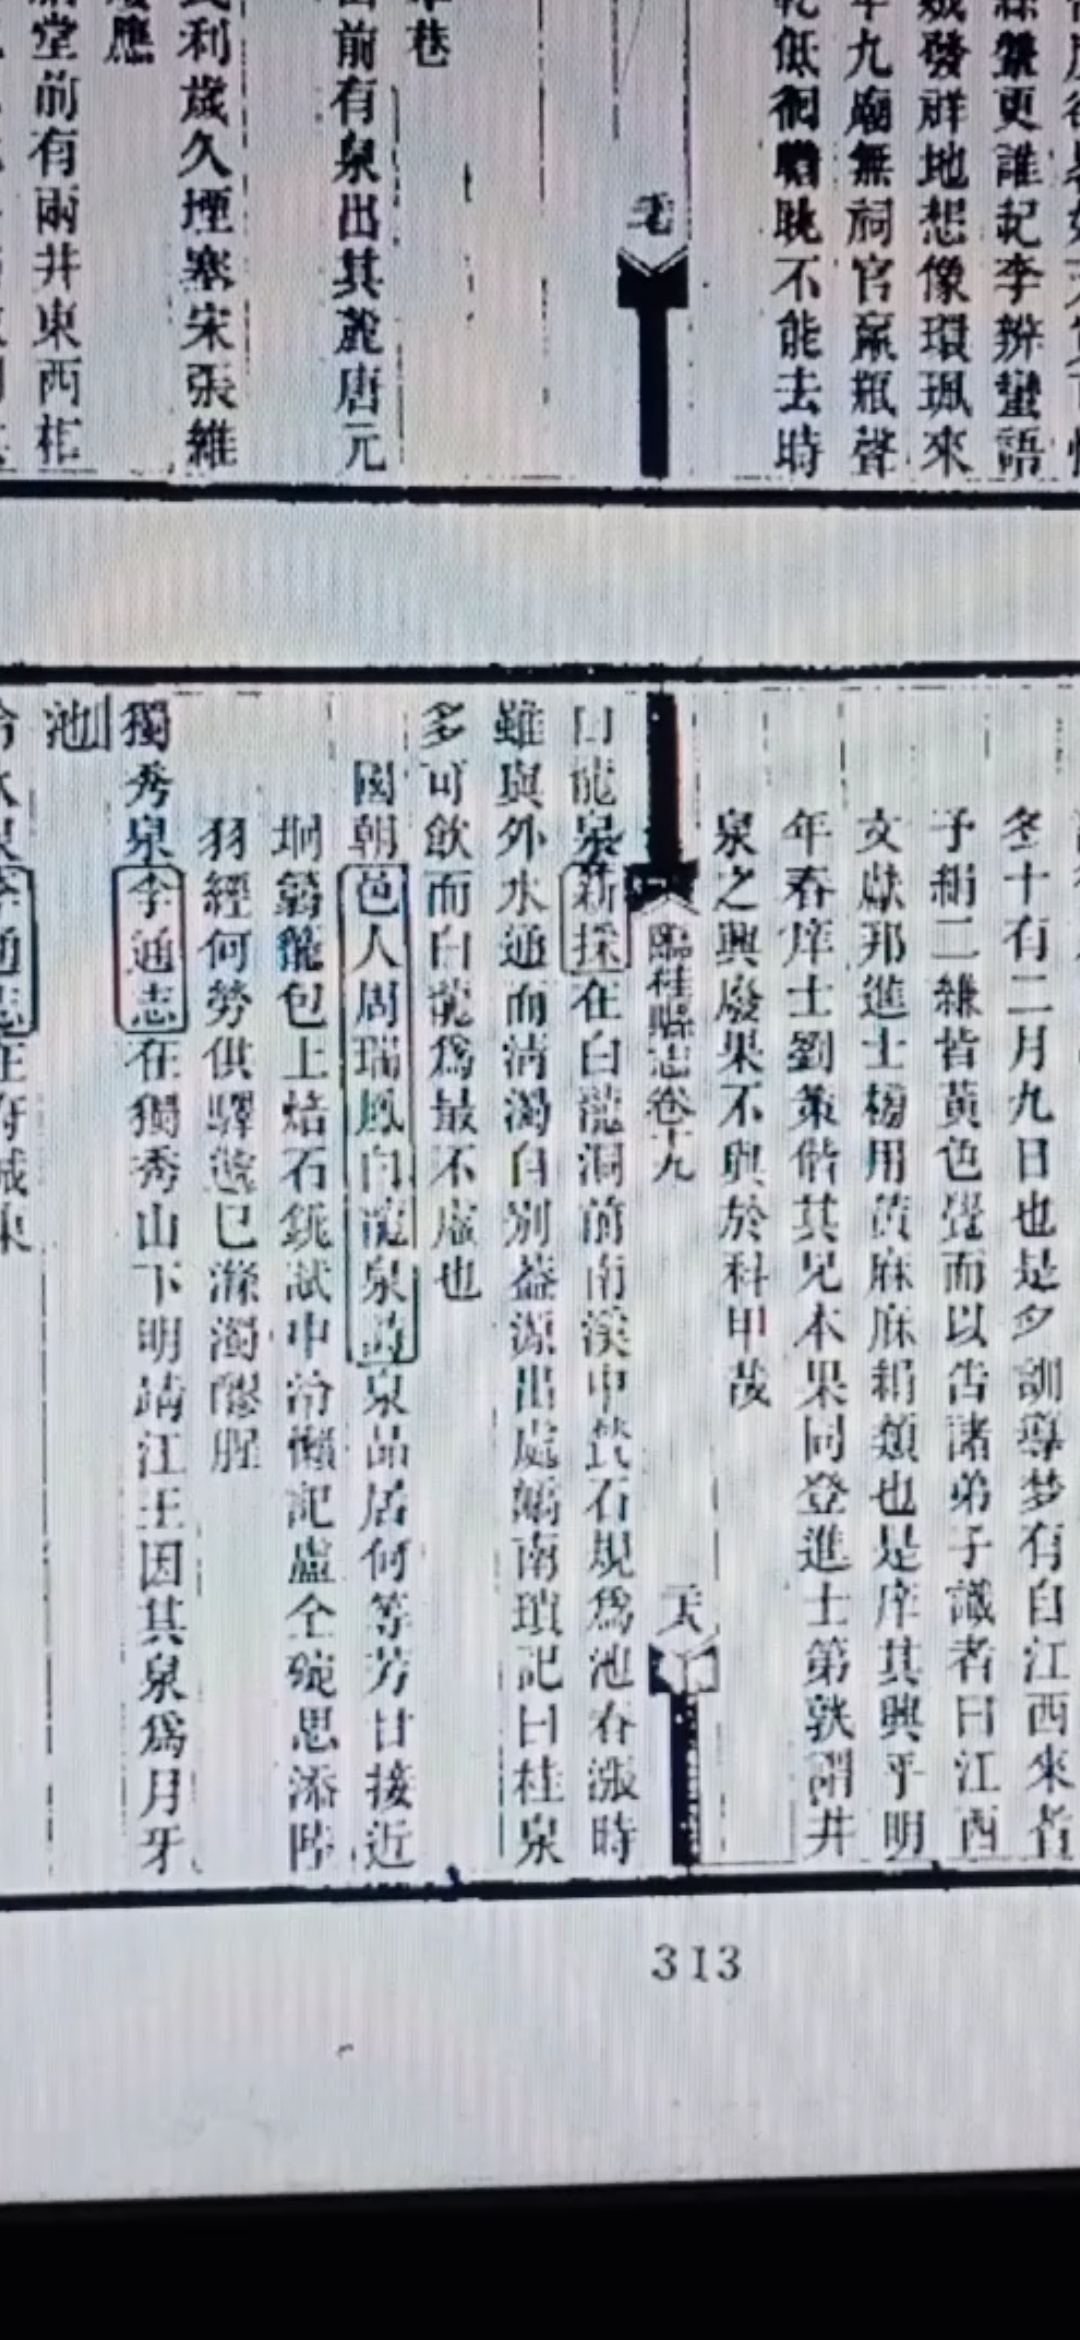 綵鬟更誰記李辨蠻語
發祥地想像環珮來
年九廟無祠官甌瓶聲
低徊瞻眺不能去時
毛
巷
前有泉出其麓唐元
利歲久堙塞宋張維
應
堂前有兩井東西相
冬十有二月九日也是夕訓導梦有自江西來者
予絹二縑皆黃色覺而以告諸弟子識者曰江西
文獻邦進士榜用黃麻麻絹類也是庠其興乎明
年春庠士劉策偕其兄本果同登進士第孰謂井
泉之興廢果不與於科甲哉
臨桂縣志卷十九
天
白龍泉薪採在白龍洞前南溪中甃石規爲池春漲時
雖與外水通而清濁自別蓋源出處嶠南瑣記曰桂泉
多可飲而白龍爲最不虛也
國朝邑人周瑞鳳白龍泉詩泉品居何等芳甘接近
坰蒻籠包上焙石銚試中泠懶記盧仝碗思添陸
羽經何勞供驛遞已滌濁醪腥
獨秀泉李通志在獨秀山下明靖江王因其泉爲月牙
池
泉李通志在府城東